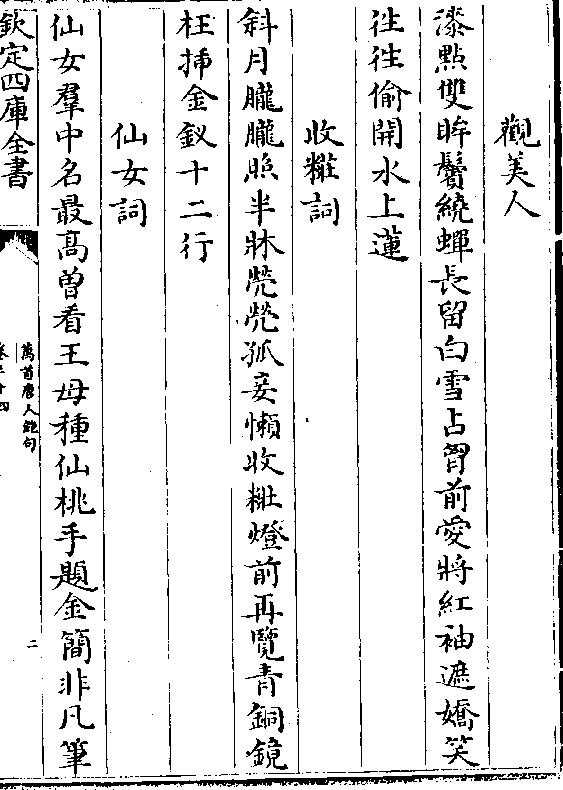 觀美人
漆㸃雙眸鬢繞蟬長留白雪占胷前愛將紅袖遮嬌笑
往往偷開水上蓮
收糚詞
斜月朧朧照半牀煢煢孤妾懶收糚燈前再覽青銅鏡
枉揷金釵十二行
仙女詞
仙女羣中名最髙曽看王母種仙桃手題金簡非凡筆
欽定四庫全書
萬首唐人絶句
二